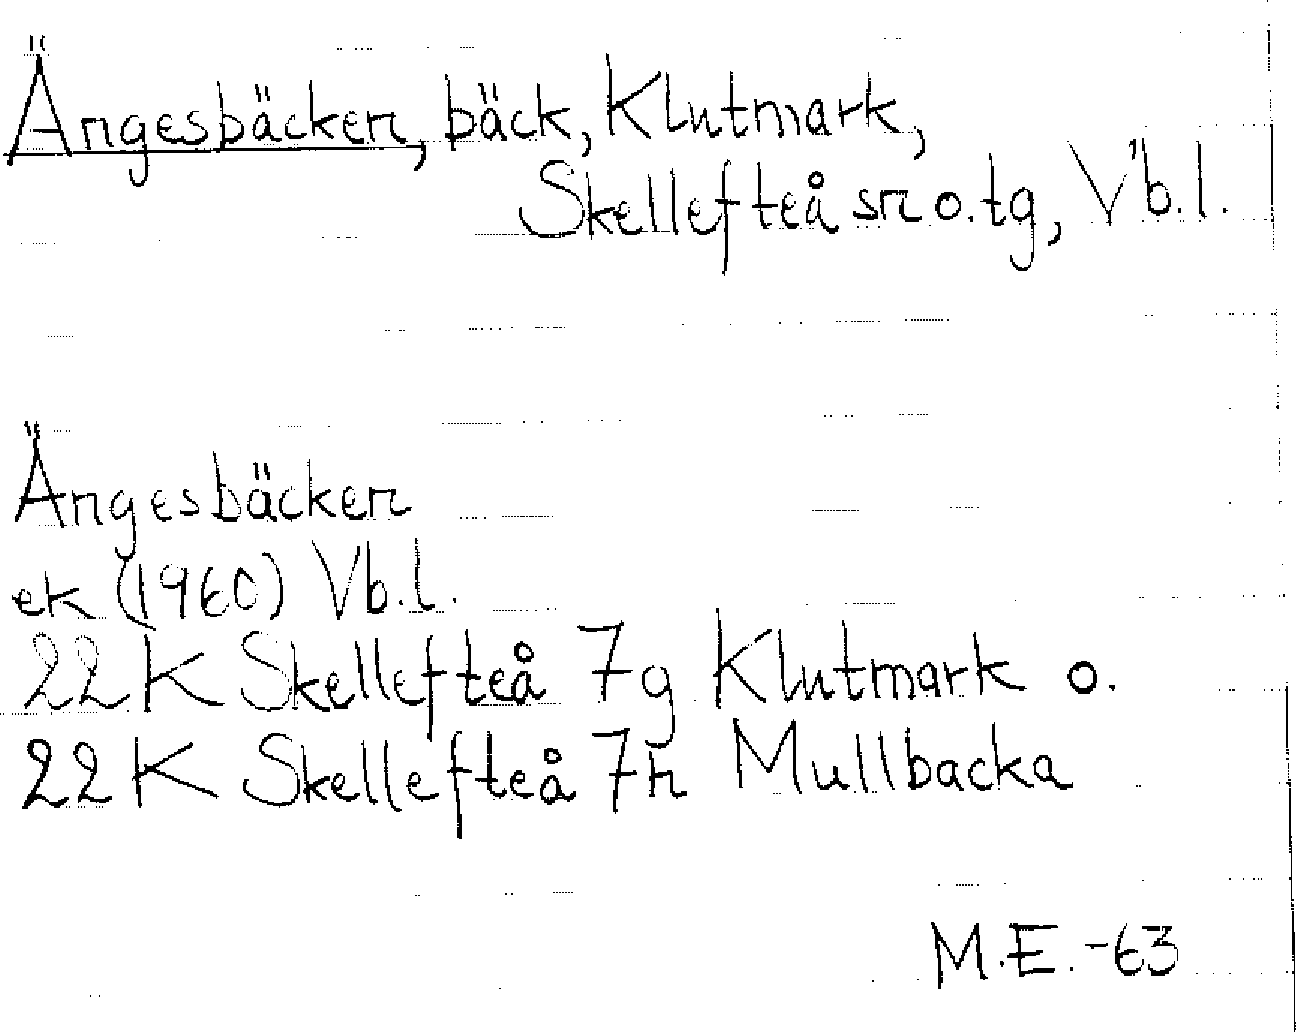 Ängesbäcken, bäck, Klutmark,
Skellefteå sn o. tg, Vb. l.
Ängesbäcken
ek (1960) Vb. l.
22 K Skellefteå 7g Klutmark o.
22 K Skellefteå 7h Mullbacka
M.E. -63